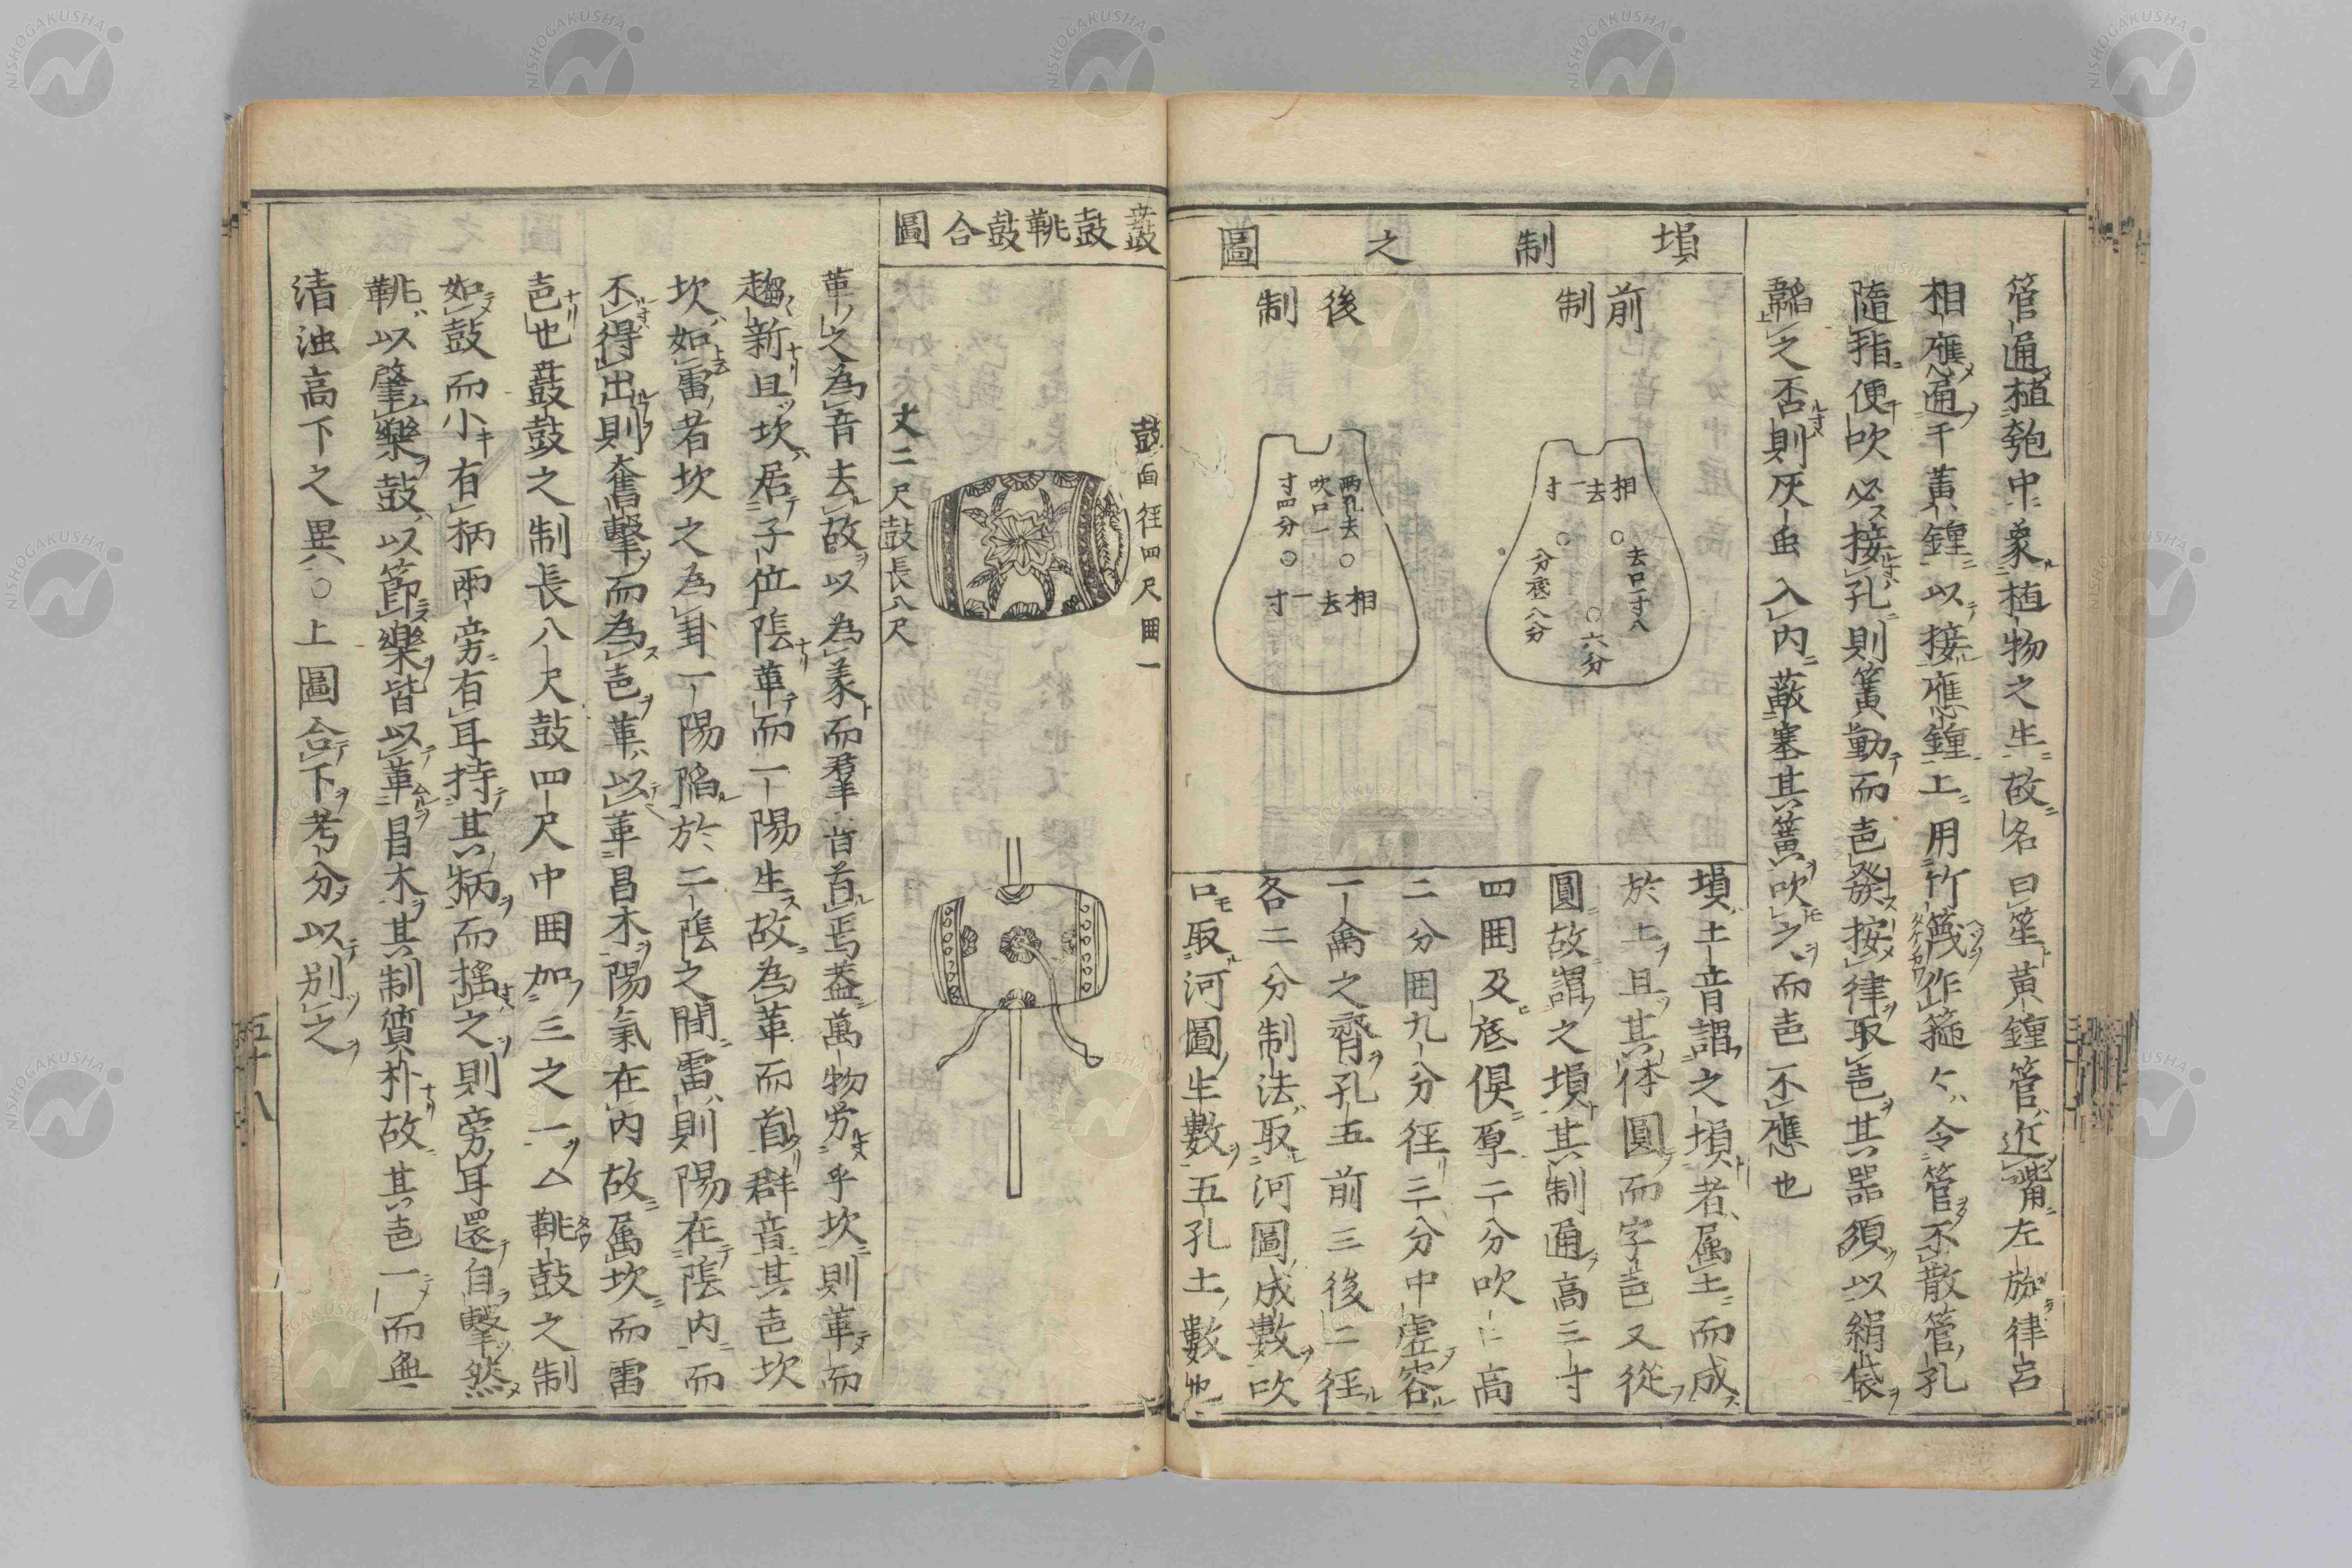 管通植匏中象植物之生故名曰笙黄鐘管近嘴左旋律呂
相應通千黄鐘以接應鐘上用竹篾作箍々令管不散管孔
隨指便吹必接孔則簧動而声發按律取声其器須以絹袋
韜之否則灰虫入内蔽塞其簧吹之而声不應也
塤制之圖
前制
相去一寸
去口一寸八分底八分
六分
後制
兩孔去吹口一寸四分
相去一寸
塤土音謂之塤者属土而成
於土且其体圓而字声又從
圓故謂之塤其制通高三寸
四囲及底俱厚二分吹口高
二分囲九分径三分中虚容
一龠之齊孔五前三後二径
各二分制法取河圖成數吹
口取河圖生數五孔土數也
鼖鼓鞉鼓合圖
鼓面径四尺囲一
丈二尺鼓長八尺
革之為音去故以為義而羣音首焉蓋萬物労乎坎則革而
趨新且坎居子位陰革而一陽生故為革而首群音其声坎
坎如雷者坎之為卦一陽陥於二陰之間雷則陽在陰内而
不得出則奮擊而為声革以革昌木陽氣在内故属坎而雷
声也鼖鼓之制長八尺鼓四尺中囲加三之一△鞉鼓之制
如鼓而小有柄兩旁有耳持其柄而揺之則旁耳還自擊然
鞉以肇樂鼓以節樂皆以革昌木其制質朴故其声一而無
清浊高下之異○上圖合下考分以別之
五十八
NISHOGAKUSHA